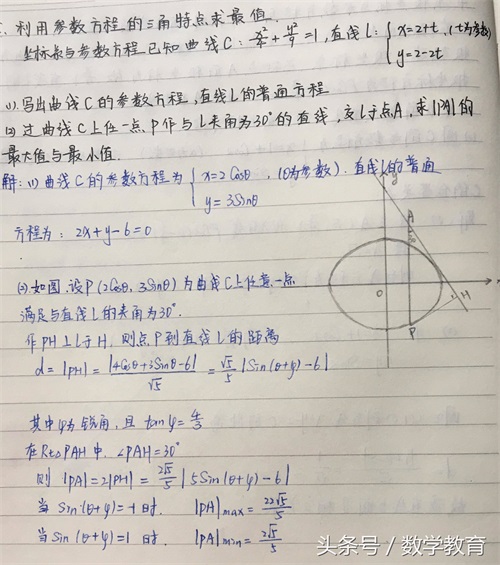 利用参数方程的三角特点求最值
坐标系与参数方程 已知曲线C: x²/4 + y²/9 = 1, 直线l: { x=2+t, (t为参数)
y=2-2t
(1). 写出曲线C的参数方程, 直线l的普通方程
(2) 过曲线C上任一点P作与l夹角为30°的直线, 交l于点A, 求|PA|的
最大值与最小值.
解: (1) 曲线C的参数方程为 { x=2Cosθ , (θ为参数). 直线l的普通
y=3Sinθ
方程为: 2x+y-6=0
(2) 如图. 设P(2Cosθ, 3Sinθ)为曲线C上任意一点
满足与直线l的夹角为30°.
作PH⊥l于H, 则点P到直线l的距离
d=|PH|= |4Cosθ+3Sinθ-6|/√5 = √5/5 |Sin(θ+φ)-6|
其中φ为锐角, 且 tanφ=4/3
在Rt△PAH中, ∠PAH=30°
则 |PA|=2|PH|= 2√5/5 |5Sin(θ+φ)-6|
当 Sin(θ+φ)=-1 时. |PA|max= 22√5/5
当 Sin(θ+φ)=1 时. |PA|min= 2√5/5
y
A
30°
O
H
P
头条号 / 数学教育